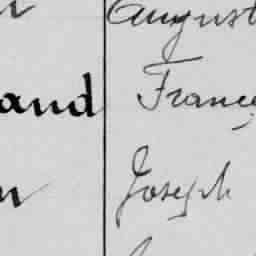 August
and Franç
Joseph